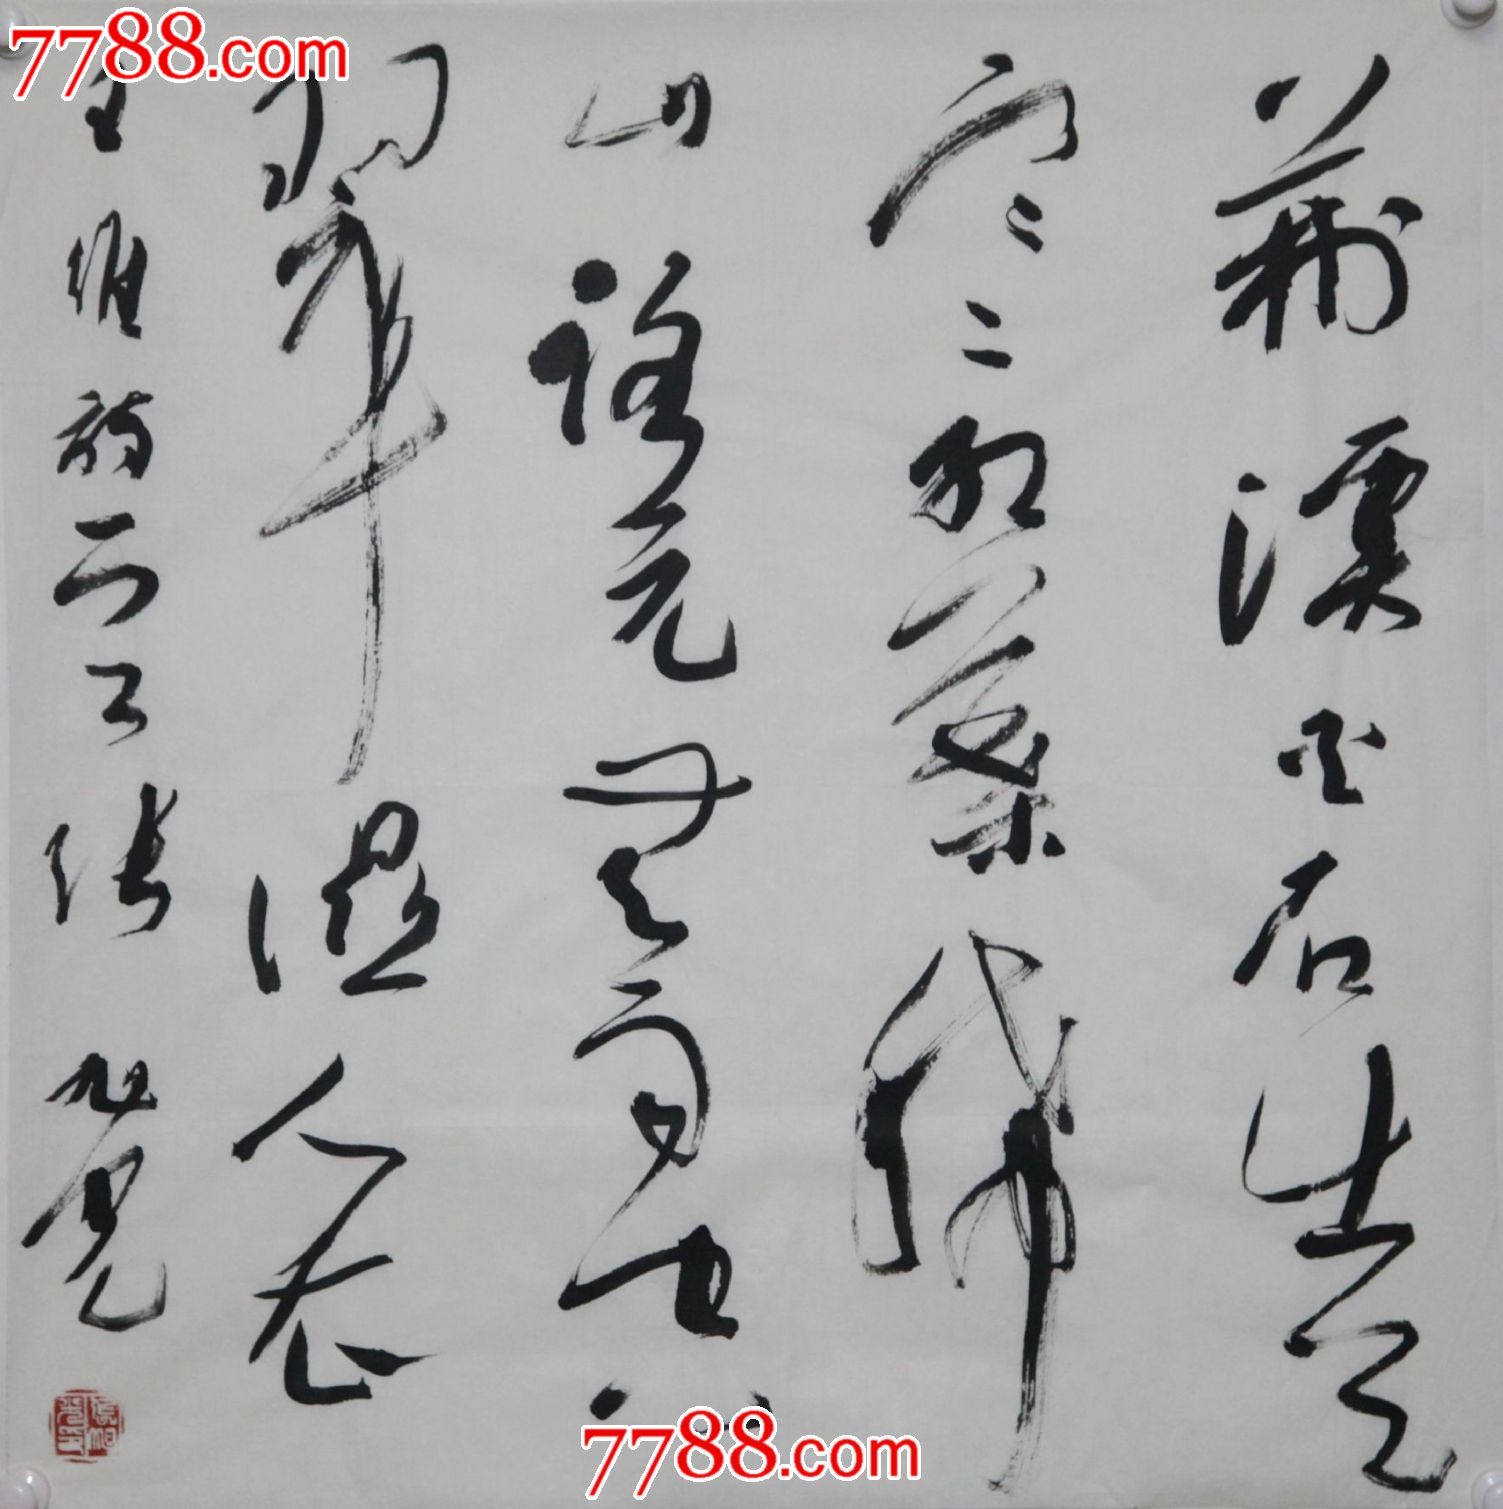 7788.com
荆溪白石出天
寒红葉稀
山路元無雨空
翠湿人衣
王維詩 张旭光
7788.com